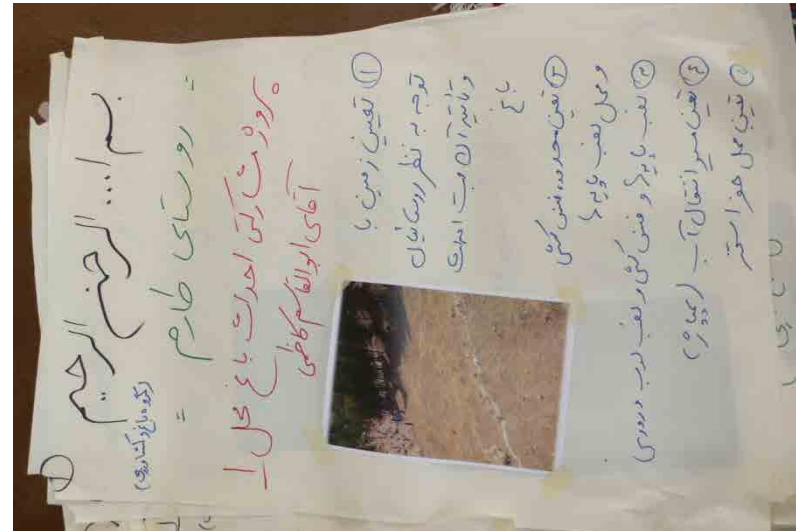 بسم ا... الرحمن الرحیم
(گروه باغ و کشاورزی)
= روستای طارم =
پروژه مشارکتی احداث باغ محل ۱
آقای ابوالقاسم کاظمی
۱ تعیین زمین با
توجه به نظر روستائیان
و تائید آن جهت احداث
باغ
۲ تعیین محدوده فنس کشی
و محل نصب پایه ها
۳ نصب پایه ها و فنس کشی و نصب درب ورودی
۴ تعیین مسیر انتقال آب (
۵ تعیین محل حفر استخر